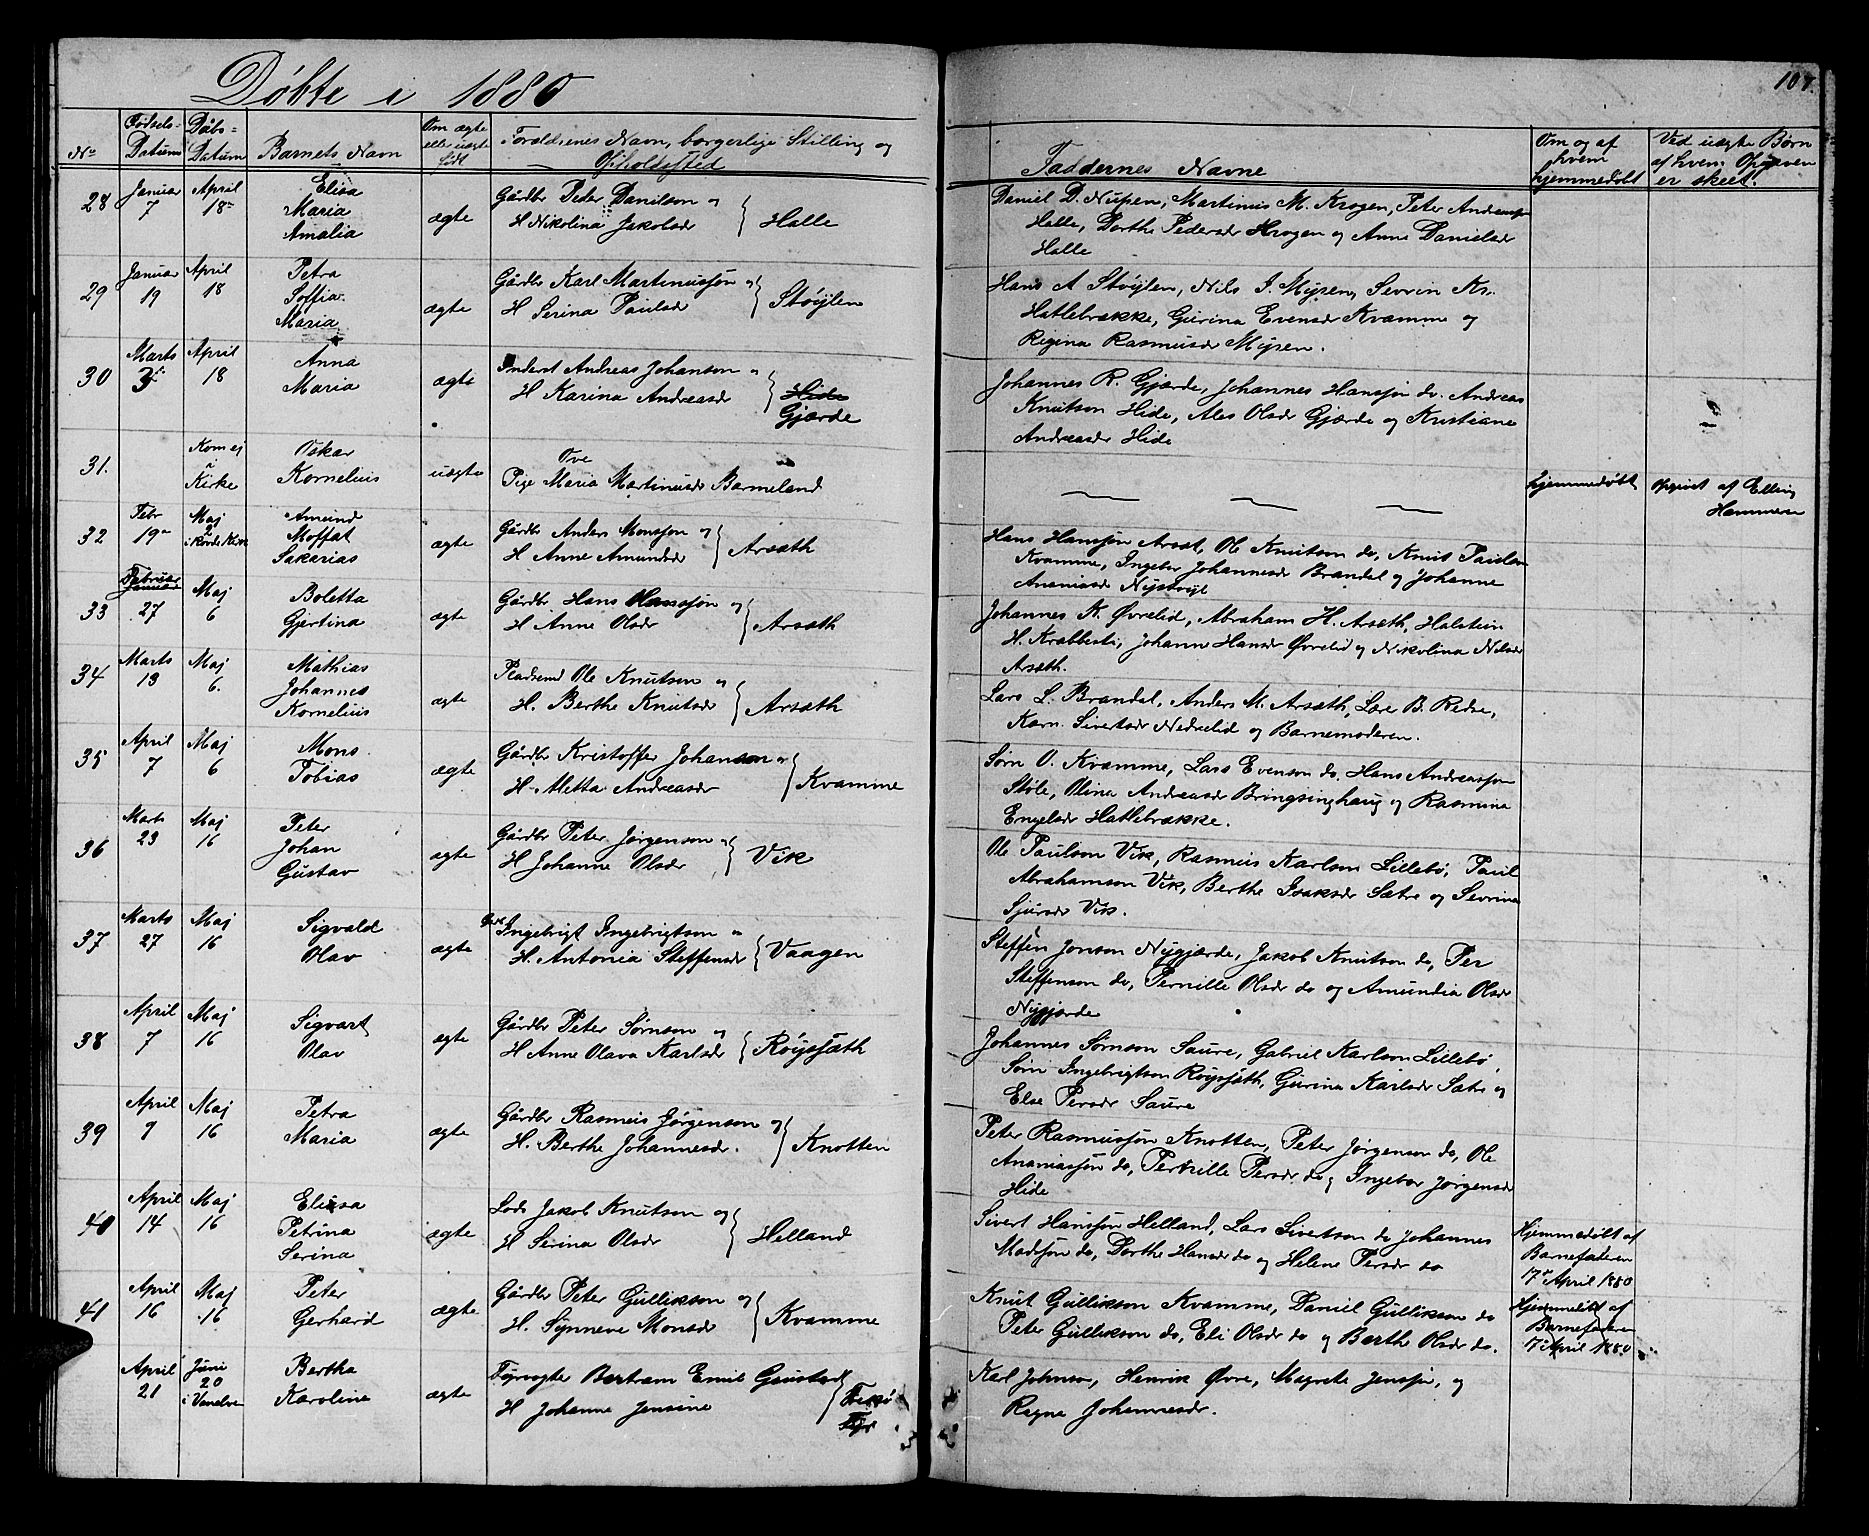 Døbte i 1880
107.
No
Fødsels-
Datum
Døbs-
Datum
Barnets Navn
Om ægte
eller uægte
født
Forældrenes Navn, borgerlige Stilling og
Opholdssted
Faddernes Navne
Om og af
hvem
hjemmedøbt
Ved uægte Børn
af hvem Opgaven
er skeet.
28
Januar
7
April
18
Elisa
Maria
Amalia
ægte
Gårdbr Peder Danilson og
H Nikolina Jakobsdr
Halle
Daniel D. Nupen, Martinus M. Krogen, Peter Andreas
Halle, Dorthe Pedersdr Krogen og Anne Danielsdr
Halle
29
Januar
19
April
18
Petra
Soffia
Maria
ægte
Gårdbr Karl Martinussøn og
H Serina Paulsdr
Støylen
Hans A Støylen, Nils J. Myren, Sevrin Kr.
Hatlebrække, Gurina Evensdr Kvamme og
Regina Rasmusdr Myren.
30
Marts
3
April
18
Anna
Maria
ægte
Inderst Andreas Johanson og
H Karina Andreasdr
Hide
Gjærde
Johannes R. Gjærde, Johannes Hanssøn do. Andreas
Knutson Hide, Ales Olsdr Gjærde og Kristiane
Andreasdr Hide
31.
Kom ej
i
Kirke
Oskar
Kornelius
uægte
Ove
Pige Maria Martinusdr Barmeland
hjemmedøbt
opgivet af Elling
Hammeren
32
Febr
19
Maj
2
i Rovde Kirke
Amund
Moffat
Sakarias
ægte
Gårdbr Anders Monssøn og
H Anne Amundsdr
Arsæth
Hans Hanssøn Arsæt, Ole Knutson do, Knut Paulsen
Kvamme, Ingebor Johannesdr Brandal og Johanne
Ananiasdr Nystøyl
33
Februar
Januar
27
Maj
6
Boletta
Gjertina
ægte
Gårdbr Hans Hanssøn og
H Anne Olsdr
Arsæth
Johannes K. Øvrelid, Abraham H. Arsæth, Halstein
H. Krabbesti, Johanne Hansdr Øvrelid og Nikolina Nilsdr
Arsæth.
34
Marts
13
Maj
6.
Mathias
Johannes
Kornelius
ægte
Pladsmd Ole Knutson og
H. Berthe Knutsdr
Arsæth
Lars L. Brandal, Anders M. Arsæth, Lars B. Redse,
Karn. Sivertsdr Nedrelid og Barnemoderen.
35
April
7
Maj
6
Mons
Tobias
ægte
Gårdbr Kristoffer Johanson og
H. Metta Andreasdr
Kvamme
Sørn O. Kvamme, Lars Evenson do, Hans Andreassøn
Støle, Olina Andreasdr Bringsinghaug og Rasmine
Engelsdr Hatlebrække.
36
Marts
23
Maj
16
Peter
Johan
Gustav
ægte
Gårdbr Peter Jørgenson og
H Johanne Olsdr
Vik
Ole Paulson Vik, Rasmus Karlson Lillebø, Paul
Abrahamson Vik, Berthe Isaksdr Sætre og Sevrina
Sjursdr Vik.
37
Marts
27
Maj
16
Sigvald
Olav
ægte
Ingebrigt Ingebrigtson og
H. Antonia Steffensdr
Vaagen
Steffen Jonson Nygjærde, Jakob Knutson do, Per
Steffenson do, Pernille Olsdr do og Amundia Olsdr
Nygjærde
38
April
7
Maj
16
Sigvart
Olav
ægte
Gårdbr Peter Sørnson og
H Anne Olava Karlsdr
Røyssæth
Johannes Sørnson Saure, Gabriel Karlson Lillebø,
Sørn Ingebrigtson Røyssæth, Gurina Karlsdr Sætre og
Else Persdr Saure
39
April
9
Maj
16
Petra
Maria
ægte
Gårdbr Rasmus Jørgenson og
H. Berthe Johannesdr.
Knotten
Peter Rasmussøn Knotten, Peter Jørgenson do, Ole
Ananiassøn do, Pernille Persdr do og Ingebor Jørgensdr
Hide
40
April
14
Maj
16
Elisa
Petrina
Serina
ægte
Lods Jakob Knutson og
H Serina Olsdr
Helland
Sivert Hanssøn Helland, Lars Sivertson do Johannes
Madssøn do, Dorthe Hansdr do og Helene Persdr do
Hjemmedøbt af
Barnefaderen
17 April 1880
41
April
16
Maj
16
Peter
Gerhard
ægte
Gårdbr Peter Gullikson og
H. Synneve Monsdr
Kvamme
Knut Gullikson Kvamme, Daniel Gullikson do
Peter Gullikson do, Eli Olsdr do og Berthe Olsdr do.
Hjemmedøbt af
Barnefaderen
17 April 1880
April
21
Juni
20
i Vanelve
Bertha
Karoline
ægte
Fyrvogter Bertram Emil Gustad
H Johanne Jensine
Fyr
Karl Johnson, Henrik Øvre, Magrete Jenssøn, og
Ragna Johannesdr.